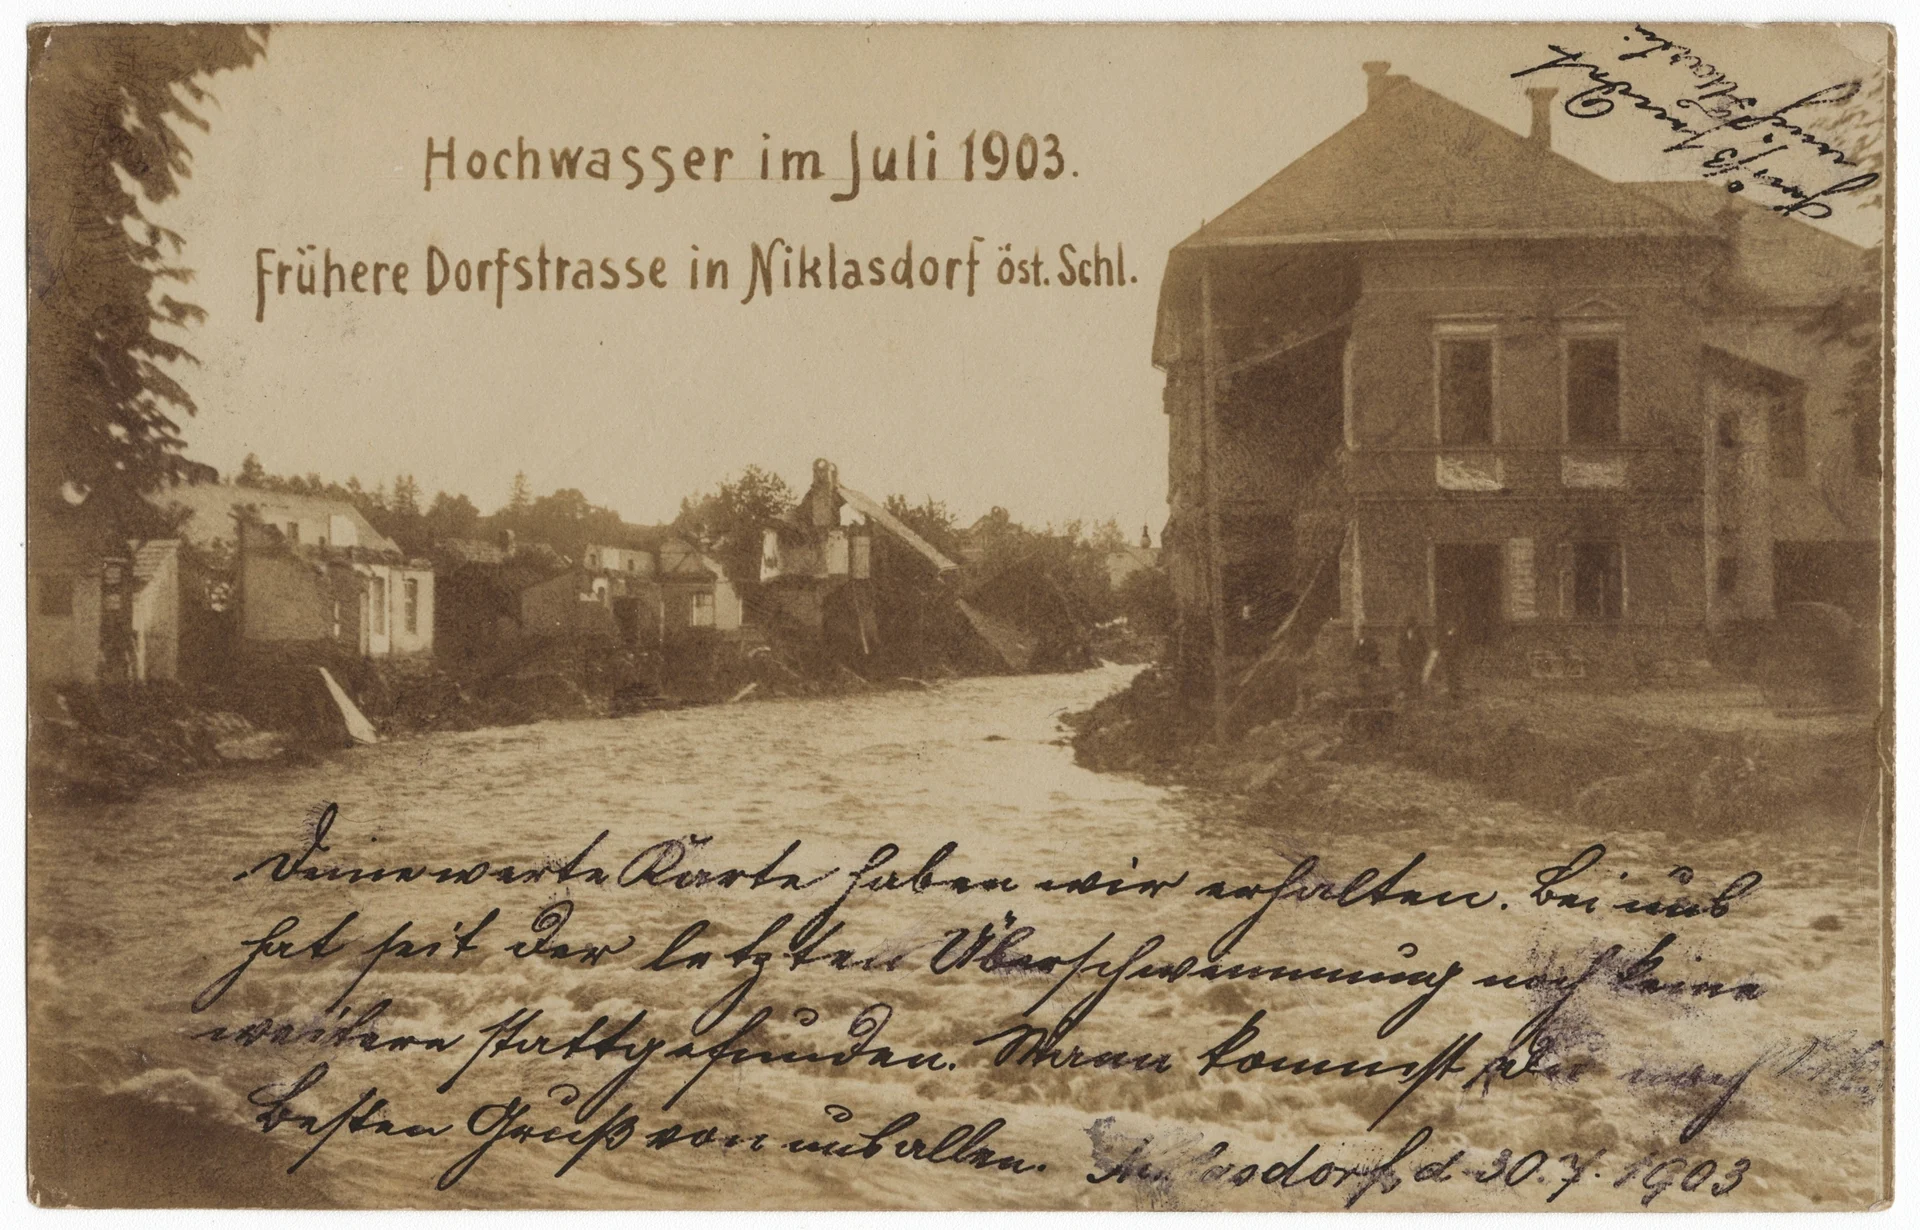 Hochwasser im Juli 1903.
Frühere Dorfstrasse in Niklasdorf öst. Schl.
Deine werte Karte haben wir erhalten. Bei uns
hat seit der letzten Überschwemmung noch keine
weitere stattgefunden. Wann kommst du nach
Besten Gruß von uns allen.
Niklasdorf, d. 30.7.1903